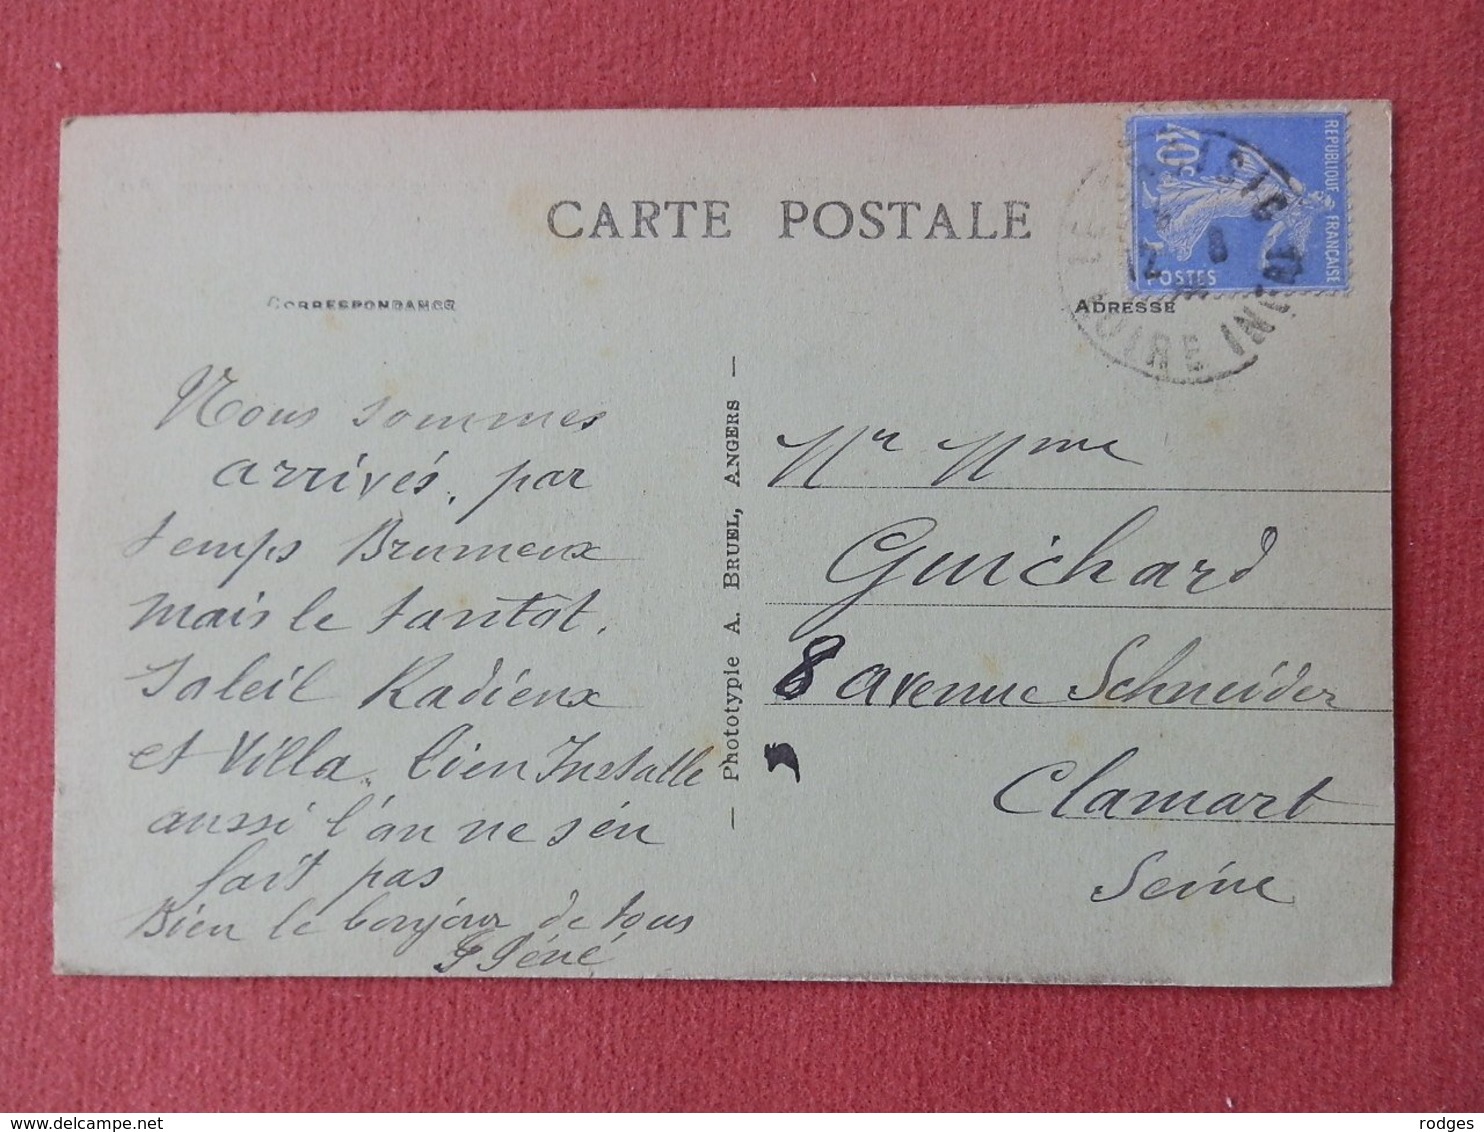 CARTE POSTALE
CORRESPONDANCE
ADRESSE
REPUBLIQUE FRANÇAISE
40c
POSTES
LOIRE INF
8
Nous sommes
arrivés. par
temps Brumeux
mais le tantot.
Soleil Radieux
et Villa. bien Installe
aussi l'an ne s'en
fait pas
Bien le bonjour de tous
Phototypie A. BRUEL, ANGERS
Mr Mme
Guichard
8 avenue Schneider
Clamart
Seine
rodges
delcampe.net